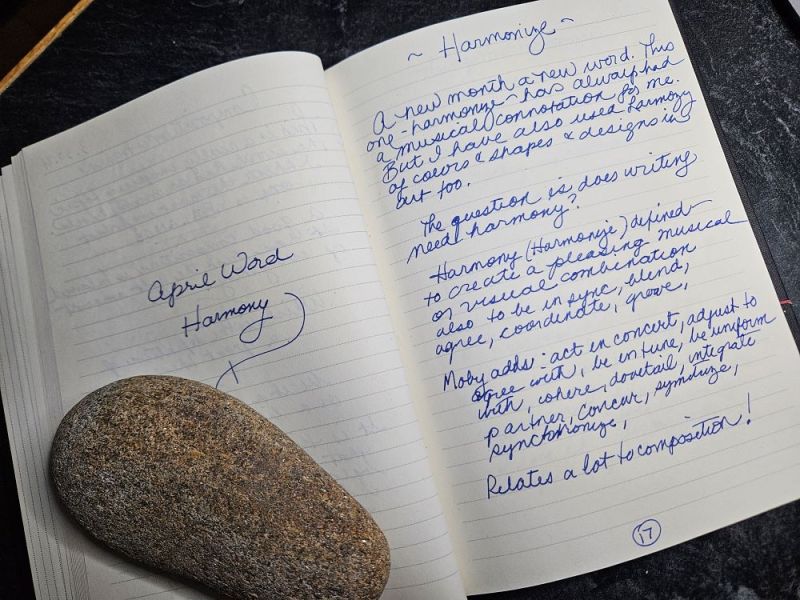 April Word
Harmony
~ Harmonize ~
A new month a new word. This
one - harmonize - has always had
a musical connotation for me.
But I have also used harmony
of colors & shapes & designs in
art too.
The question is does writing
need harmony?
Harmony (Harmonize) defined -
to create a pleasing musical
or visual combination
also to be in sync, blend,
agree, coordinate, grove,
Moby adds: act in concert, adjust to
agree with, be in tune, be uniform
with, cohere, dovetail, integrate
partner, concur,
synchronize,
Relates a lot to composition!
17